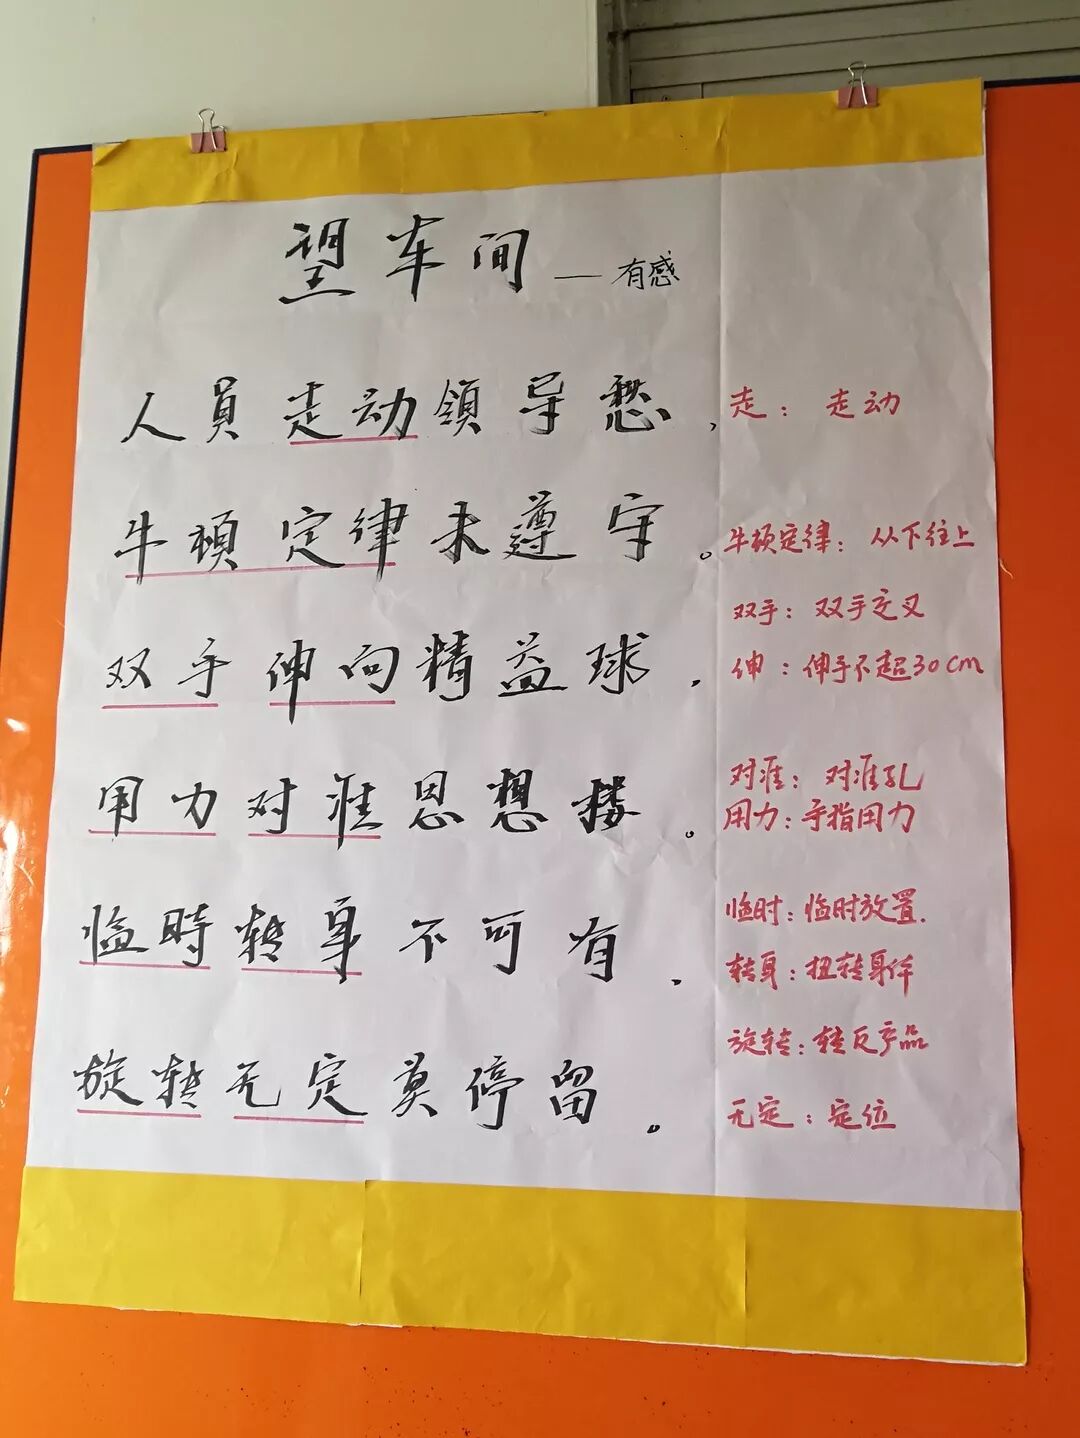 望车间——有感
人員走动領导愁,
牛顿定律未遵守。
双手伸向精益球,
用力对准思想楼。
临時转身不可有,
旋转无定莫停留。
走：走动
牛顿定律：从下往上
双手：双手交叉
伸：伸手不超30cm
对准：对准孔
用力：手指用力
临时：临时放置.
转身：扭转身体
旋转：转反产品
无定：定位